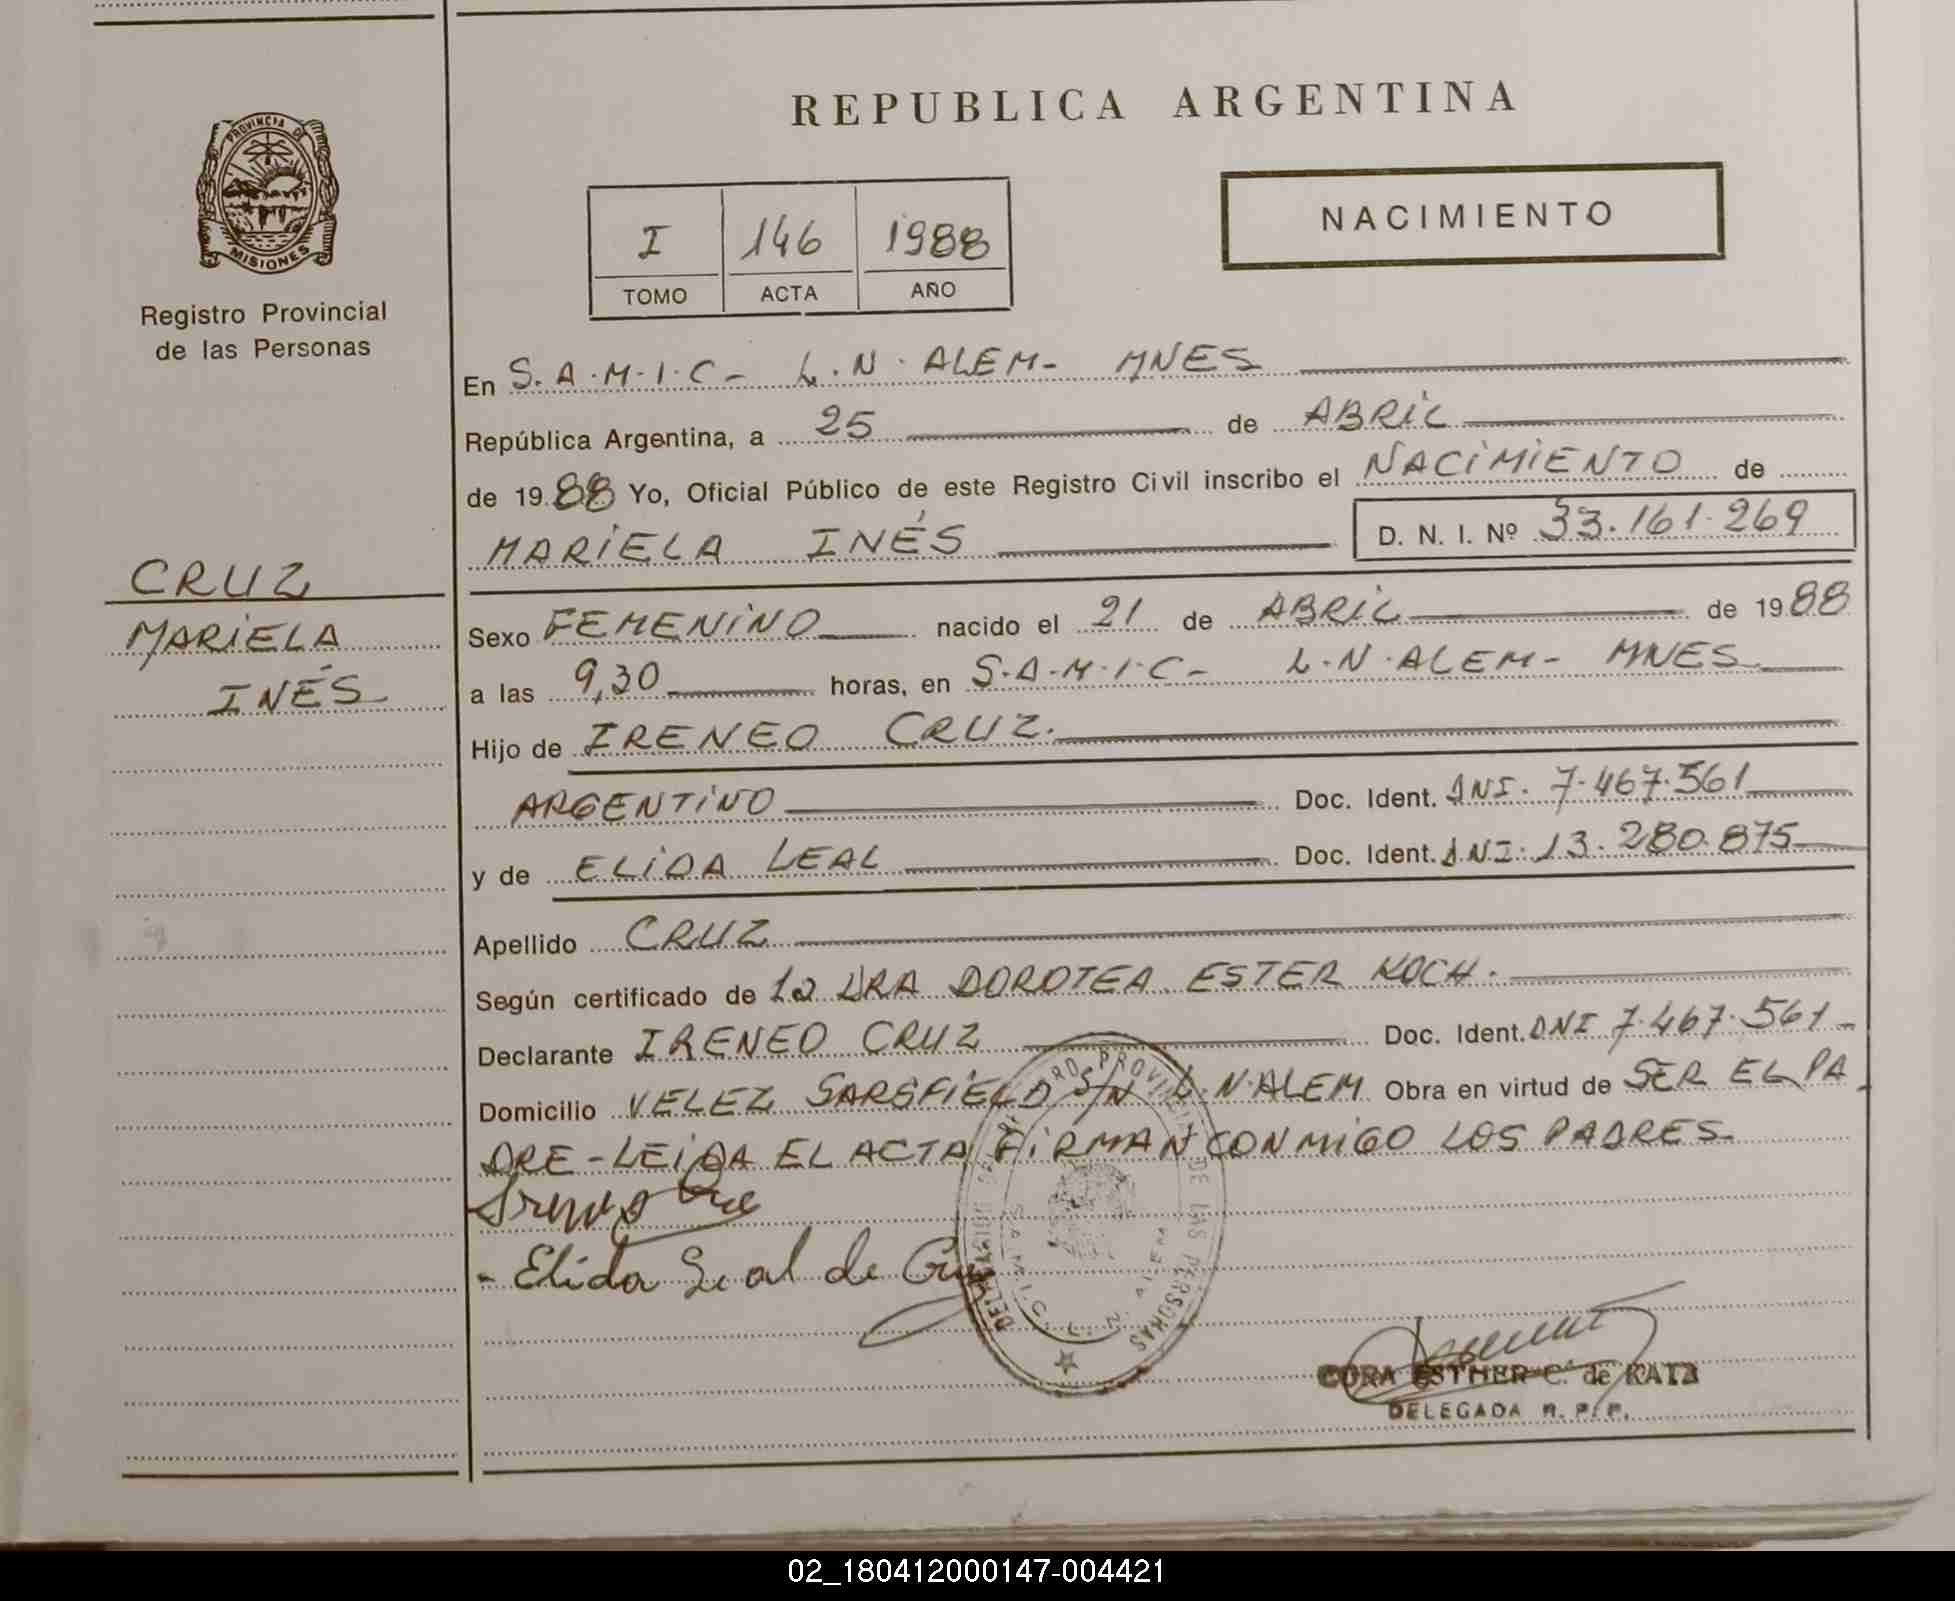 REPUBLICA ARGENTINA
PROVINCIA DE
MISIONES
Registro Provincial
de las Personas
I 146 1988
TOMO ACTA AÑO
NACIMIENTO
En S.A.M.I.C- L.N.ALEM- MNES
República Argentina, a 25 de ABRIL
de 1988 Yo, Oficial Público de este Registro Civil inscribo el NACIMIENTO de
MARIELA INÉS D. N. I. Nº 33.161.269
CRUZ
MARIELA
INÉS
Sexo FEMENINO nacido el 21 de ABRIL de 1988
a las 9,30 horas, en S.A.M.I.C- L.N.ALEM- MNES
Hijo de IRENEO CRUZ.
ARGENTINO Doc. Ident. DNI. 7.467.561
y de ELIDA LEAL Doc. Ident. D.N.I. 13.280.875
Apellido CRUZ
Según certificado de la DRA DOROTEA ESTER KOCH.
Declarante IRENEO CRUZ Doc. Ident. DNI 7.467.561-
Domicilio VELEZ SARSFIELD S/N L.N.ALEM Obra en virtud de SER EL PA
DRE-LEIDA EL ACTA FIRMAN CONMIGO LOS PADRES.
- Elida Leal de Cruz
DE LAS PERSONAS
CORA ESTHER C. de KATZ
DELEGADA R. P. P.
02_180412000147-004421